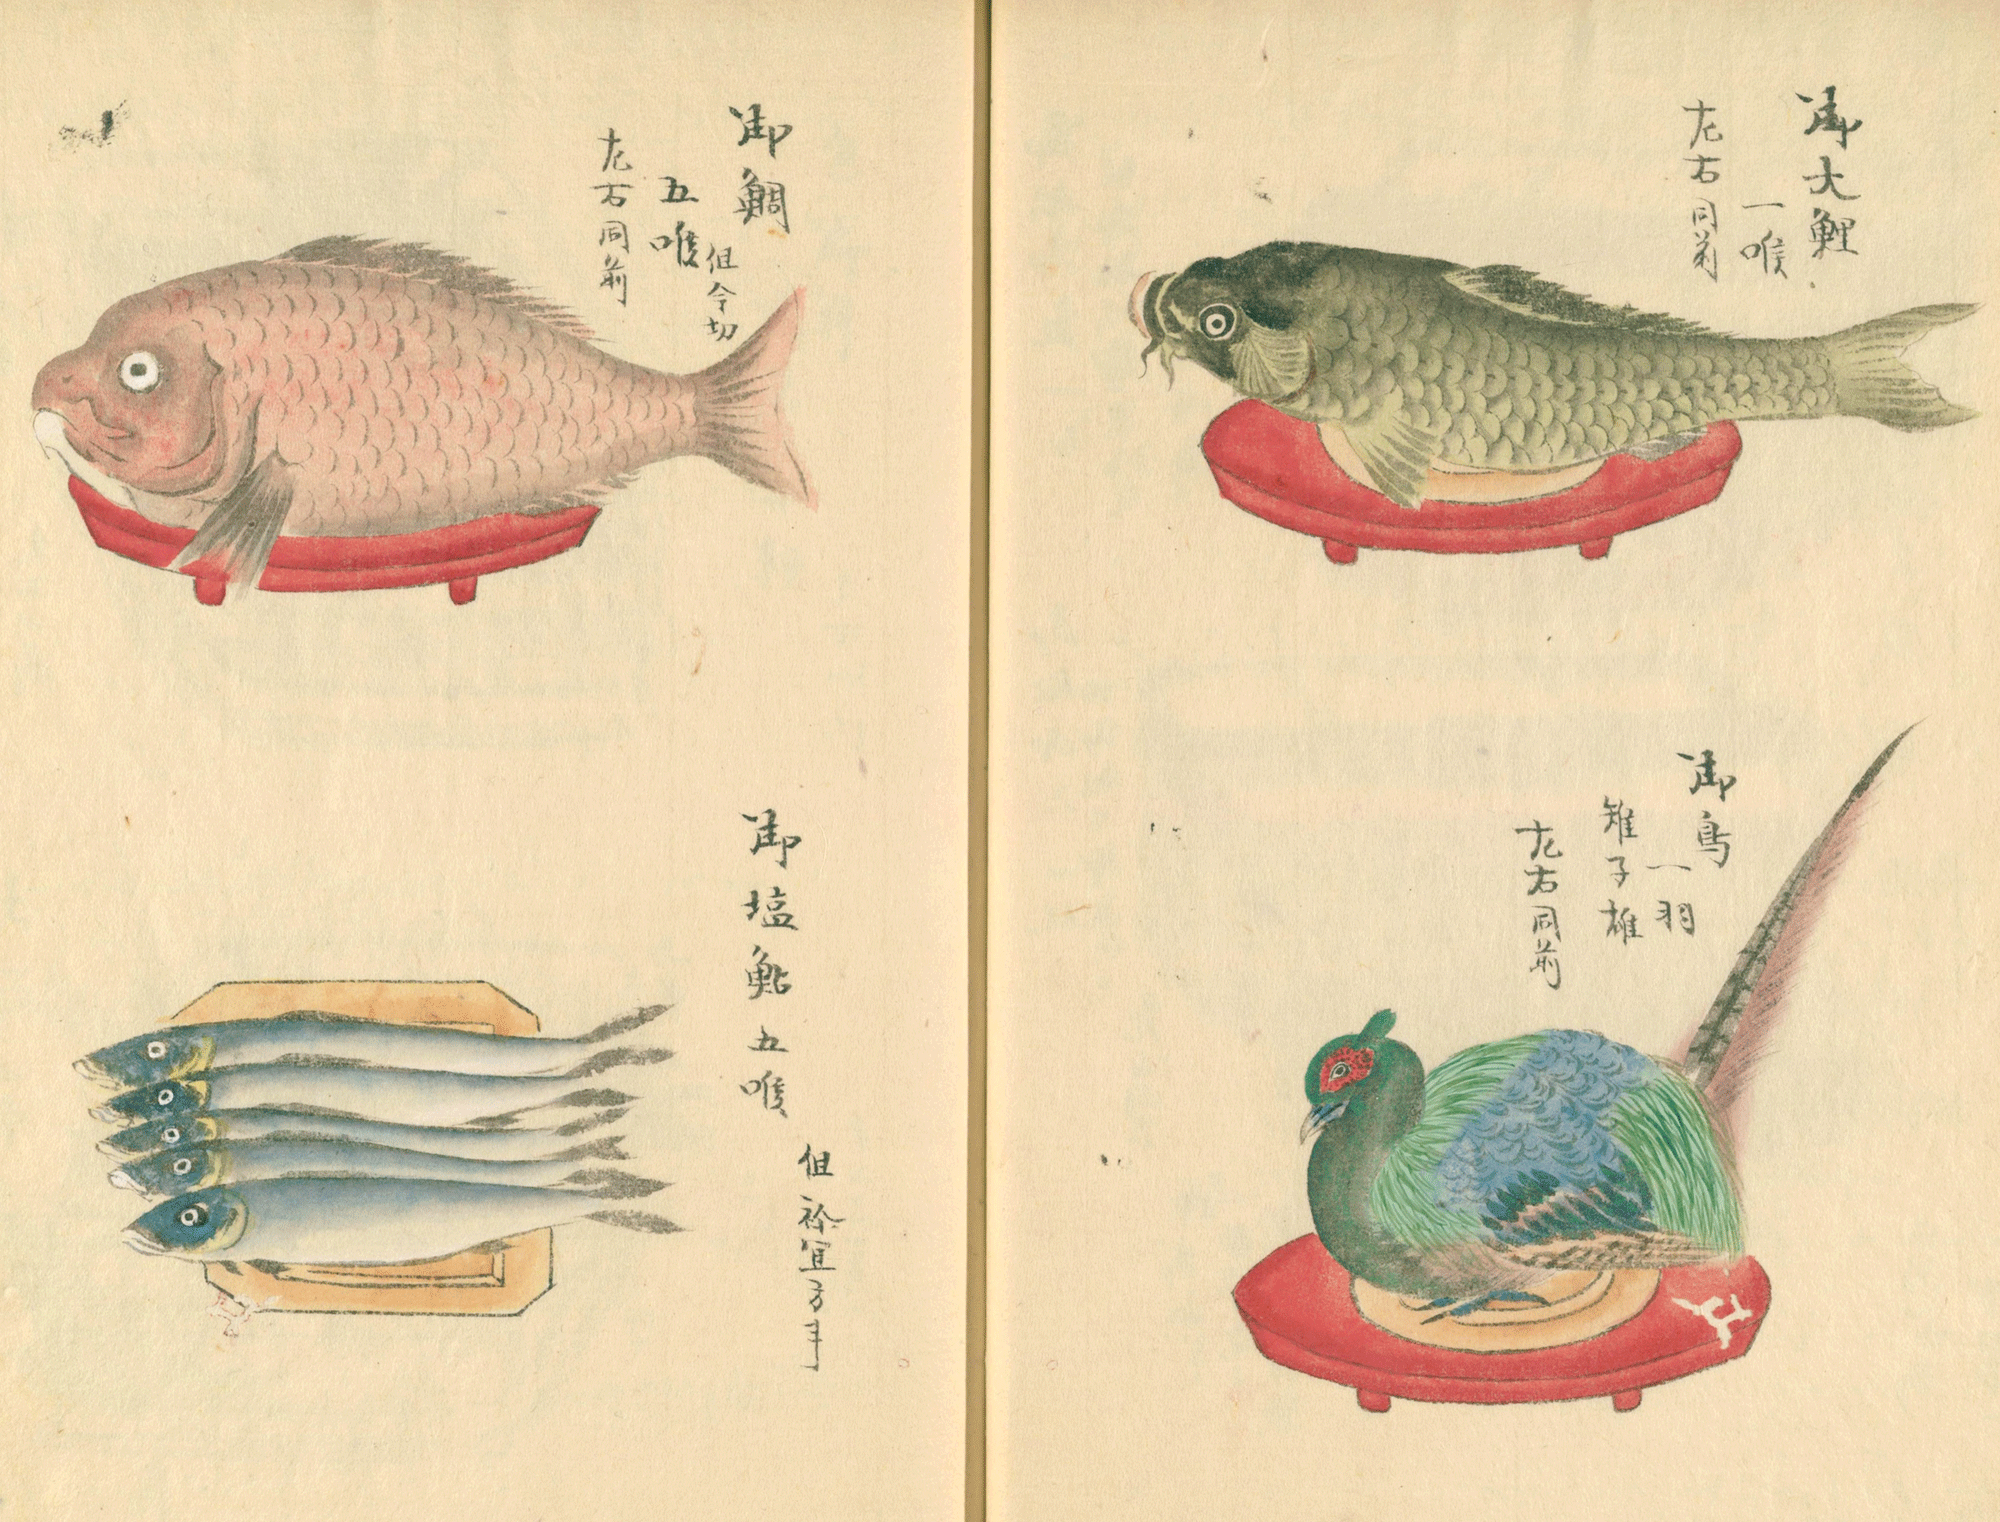 御大鯉
一喉
左右同前
御鳥
一羽
雉子雄
左右同前
御鯛
五喉
但今切
左右同前
御塩鮎 五喉
但祢宜方